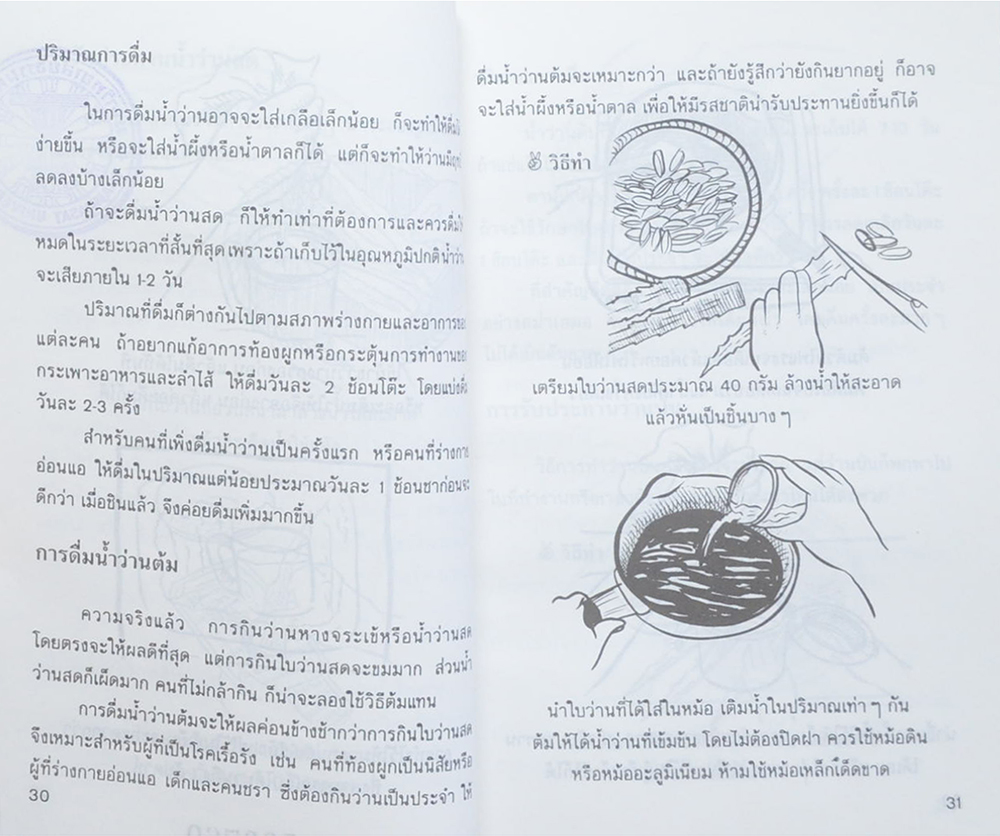 ปริมาณการดื่ม
ในการดื่มน้ำว่านอาจจะใส่เกลือเล็กน้อย ก็จะทำให้ดื่ม
ง่ายขึ้น หรือจะใส่น้ำผึ้งหรือน้ำตาลก็ได้ แต่ก็จะทำให้ว่าน
ลดลงบ้างเล็กน้อย
ถ้าจะดื่มน้ำว่านสด ก็ให้ทำเท่าที่ต้องการและควรดื่ม
หมดในระยะเวลาที่สั้นที่สุด เพราะถ้าเก็บไว้ในอุณหภูมิปกติน้ำว่า
จะเสียภายใน 1-2 วัน
ปริมาณที่ดื่มก็ต่างกันไปตามสภาพร่างกายและอาการของ
แต่ละคน ถ้าอยากแก้อาการท้องผูกหรือกระตุ้นการทำงานของ
กระเพาะอาหารและลำไส้ ให้ดื่มวันละ 2 ช้อนโต๊ะ โดยแบ่งดื่ม
วันละ 2-3 ครั้ง
สำหรับคนที่เพิ่งดื่มน้ำว่านเป็นครั้งแรก หรือคนที่ร่างกาย
อ่อนแอ ให้ดื่มในปริมาณแต่น้อยประมาณวันละ 1 ช้อนชาก่อนจะ
ดีกว่า เมื่อชินแล้ว จึงค่อยดื่มเพิ่มมากขึ้น
การดื่มน้ำว่านต้ม
ความจริงแล้ว การกินว่านหางจระเข้หรือน้ำว่านสด
โดยตรงจะให้ผลดีที่สุด แต่การกินใบว่านสดจะขมมาก ส่วนน้ำ
ว่านสดก็เผ็ดมาก คนที่ไม่กล้ากิน ก็น่าจะลองใช้วิธีต้มแทน
การดื่มน้ำว่านต้มจะให้ผลค่อนข้างช้ากว่าการกินใบว่านสด
จึงเหมาะสำหรับผู้ที่เป็นโรคเรื้อรัง เช่น คนที่ท้องผูกเป็นนิสัยหรือ
ผู้ที่ร่างกายอ่อนแอ เด็กและคนชรา ซึ่งต้องกินว่านเป็นประจำ ให้
30
ดื่มน้ำว่านต้มจะเหมาะกว่า และถ้ายังรู้สึกว่ายังกินยากอยู่ ก็อาจ
จะใส่น้ำผึ้งหรือน้ำตาล เพื่อให้มีรสชาติน่ารับประทานยิ่งขึ้นก็ได้
วิธีทำ
เตรียมใบว่านสดประมาณ 40 กรัม ล้างน้ำให้สะอาด
แล้วหั่นเป็นชิ้นบาง ๆ
นำใบว่านที่ได้ใส่ในหม้อ เติมน้ำในปริมาณเท่า ๆ กัน
ต้มให้ได้น้ำว่านที่เข้มข้น โดยไม่ต้องปิดฝา ควรใช้หม้อดิน
หรือหม้ออะลูมิเนียม ห้ามใช้หม้อเหล็กเด็ดขาด
31